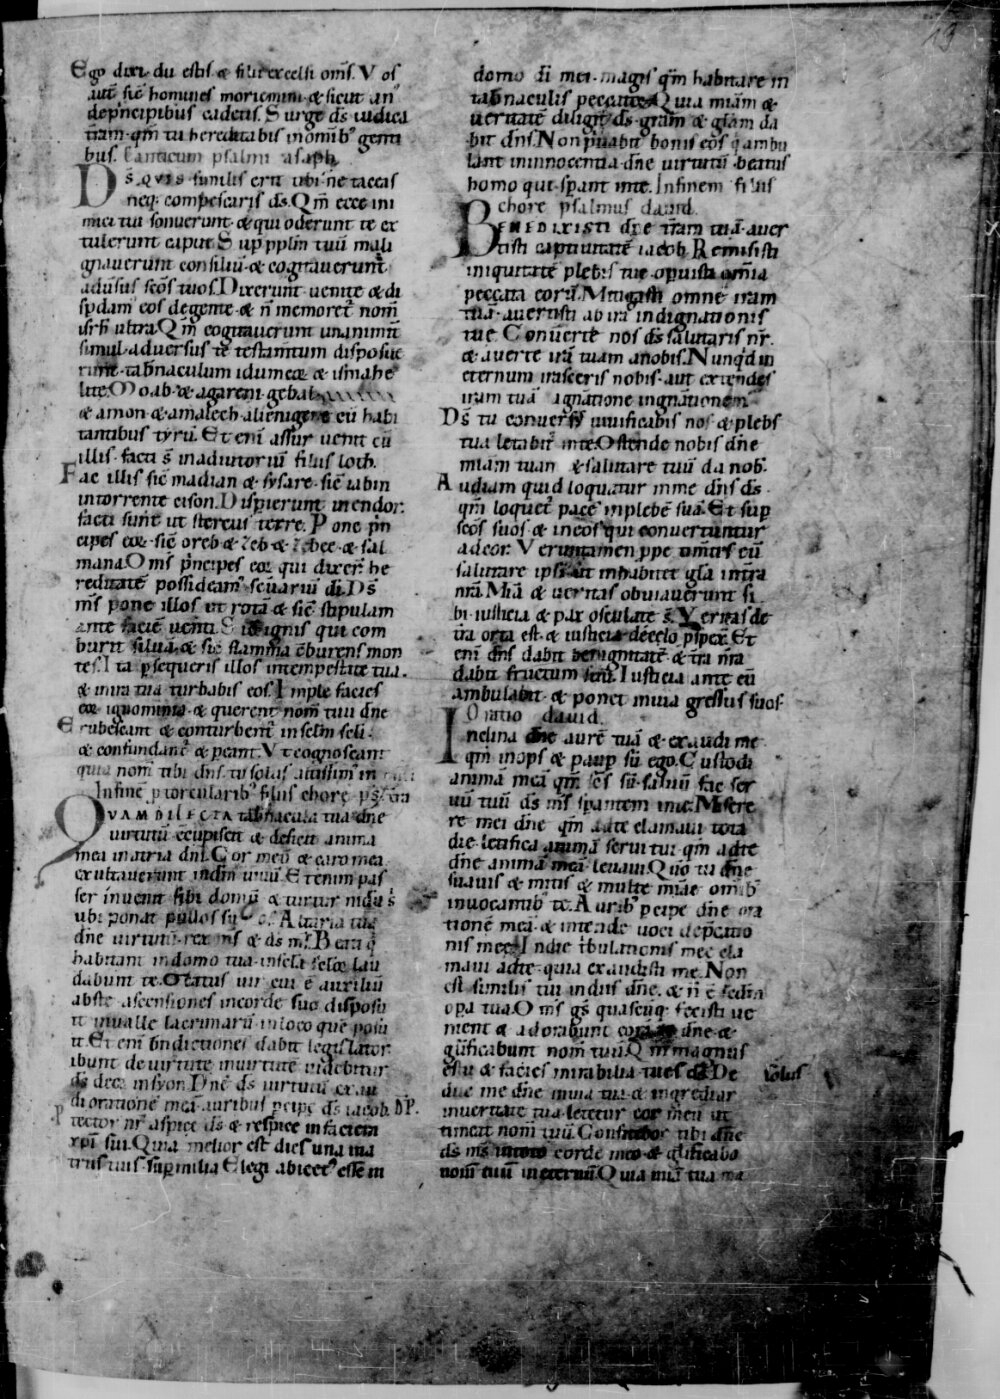 13
Ego dixi· dii estis· & filii excelsi om̄s. Vos
aut̄ sic̄ homines moriemini· & sicut un'
de p̄ncipibus cadetis. Surge d̄s iudica
t̄ram· qm̄ tu hereditabis inomib; genti
bus. Canticum psalmi asaph.
D̄s. QVIS similis erit tibi· ne taceas
neq; compescaris d̄s. Qm̄ ecce ini
mici tui sonuerunt· & qui oderunt te ex
tulerunt caput. Sup pplm̄ tuū mali
gnauerunt consiliū· & cogitauerunt
aduersus sc̄os tuos. Dixerunt uenite & di
spdam' eos degente· & n̄ memoret' nom̄
isrl̄ ultra. Qm̄ cogitauerunt unanimit̄
simul· aduersus te testam̄tum disposue
runt· tab̄naculum idumeoꝝ & ismahe
lite. Moab· & agareni· gebal
& amon· & amalech· alienigene cū habi
tantibus tyrū. Et eni assur uenit cū
illis· facti s̄ inadiutoriū filiis loth.
Fac illis sic̄ madian & sysare· sic̄ iabin
intorrente cison. Disp̄ierunt inendor·
facti sunt ut stercus terre. Pone p̄in
cipes eoꝝ· sic̄ oreb & zeb· & zebee· & sal
mana. Om̄s p̄ncipes eoꝝ qui dixer̄ he
reditatē possideam' scuariū di. D̄s
m̄s pone illos ut rotā· & sic̄ stipulam
ante faciē uenti. Sic ignis qui com
burit siluā· & sic̄ flamma cburens mon
tes. Ita p̄sequeris illos intempestate tua.
& inira tua turbabis eos. Imple facies
eoꝝ ignominia· & querent nom̄ tuū dn̄e
Erubescant & conturbent' inselm̄ seli·
& confundant' & peant. Vt cognoscant
quia nom̄ tibi dn̄s· tu solus altissim' in
Infinē ptorcularib; filiis chore ps
QVAM DILECTA tab̄nacula tua dn̄e
uirtutū· ccupiscit & deficit anima
mea inatria dn̄i. Cor meū & caro mea·
exultauerunt indm̄ uiuū. Etenim pas
ser inuenit sibi domū· & turtur nidū s
ubi ponat pullos su Altaria tua
dn̄e uirtutū· rex m̄s & d̄s m̄s. Beati q̇
habitant indomo tua· insela seloꝝ lau
dabunt te. Beatus uir cui ē auxiliū
abs te· ascensiones incorde suo disposu
it inualle lacrimarū· inloco quē posu
it. Et eni bn̄dictiones dabit legislator·
ibunt de uirtute inuirtutē· uidebitur
d̄s deoꝝ insyon. Dn̄e d̄s uirtutū exau
di orationē meā· auribus pcipe d̄s iacob.
Ptector nr̄ aspice d̄s· & respice infaciem
xp̄i sui. Quia melior est dies una ina
triis tuis· sup milia. Elegi abicct' esse in
domo di mei· magis qm̄ habitare in
tab̄naculis peccatoꝝ. Quia miam &
ueritatē diligit d̄s· gram̄ & gl̄am da
bit dn̄s. Non p̄uabit bonis eos q̇ ambu
lant ininnocentia· dn̄e uirtutū· beatus
homo qui sp̄ant inte. Infinem filiis
chore psalmus dauid.
BENEDIXISTI dn̄e t̄ram tuā· auer
tisti captiuitatē iacob. Remisisti
iniquitatē plebis tue· opuisti om̄ia
peccata eorū. Mitigasti omnē iram
tuā· auertisti ab ira indignationis
tue. Conuerte nos d̄s salutaris nr̄·
& auerte irā tuam anobis. Nunqd in
eternum irasceris nobis· aut extendes
iram tuā agn̄atione ingn̄ationem
D̄s tu conuersus uiuificabis nos· & plebs
tua letabit' inte. Ostende nobis dn̄e
miam tuam & salutare tuū da nob.
Audiam quid loquatur inme dn̄s d̄s·
qm̄ loquet' pacē inplebē suā. Et sup
sc̄os suos· & ineos qui conuertuntur
ad cor. Veruntamen ppe timētes eū
salutare ipsius· ut inhabitet gl̄a int̄ra
nr̄a. Miā & ueritas obuiauerunt si
bi· iusticia & pax osculate s̄. Veritas de
t̄ra orta est· & iusticia de celo p̄spex̄. Et
eni dn̄s dabit benignitatē· & t̄ra nr̄a
dabit fructum suū. Iusticia ante eū
ambulabit· & ponet inuia gressus suos·
Oratio dauid.
Inclina dn̄e aurē tuā & exaudi me·
qm̄ inops & paup sū ego. Custodi
animā meā qm̄ sc̄s sū· saluū fac ser
uū tuū d̄s m̄s sp̄antem inte. Misere
re mei dn̄e qm̄ adte clamaui tota
die· letifica animā serui tui· qm̄ adte
dn̄e animā meā leuaui. Qn̄o tu dn̄e
suauis & mitis· & multe miae omib;
inuocantib; te. Aurib; pcipe dn̄e ora
tionē meā· & intende uoci dep̄catio
nis mee. Indie tbulationis mee cla
maui adte· quia exaudisti me. Non
est similis tui indiis dn̄e· & n̄ ē sedm̄
opa tua. Om̄s gs̄ quascūq; fecisti ue
nient & adorabunt corā te dn̄e· &
gl̄ificabunt nom̄ tuū. Qm̄ magnus
es tu & facies mirabilia tu es d̄s solus
De
duc me dn̄e inuia tua & ingrediar
inueritate tua· letetur cor meū ut
timeat nom̄ tuū. Confitebor tibi dn̄e
d̄s m̄s intoto corde meo· & gl̄ificabo
nom̄ tuū ineternū. Quia miā tua ma